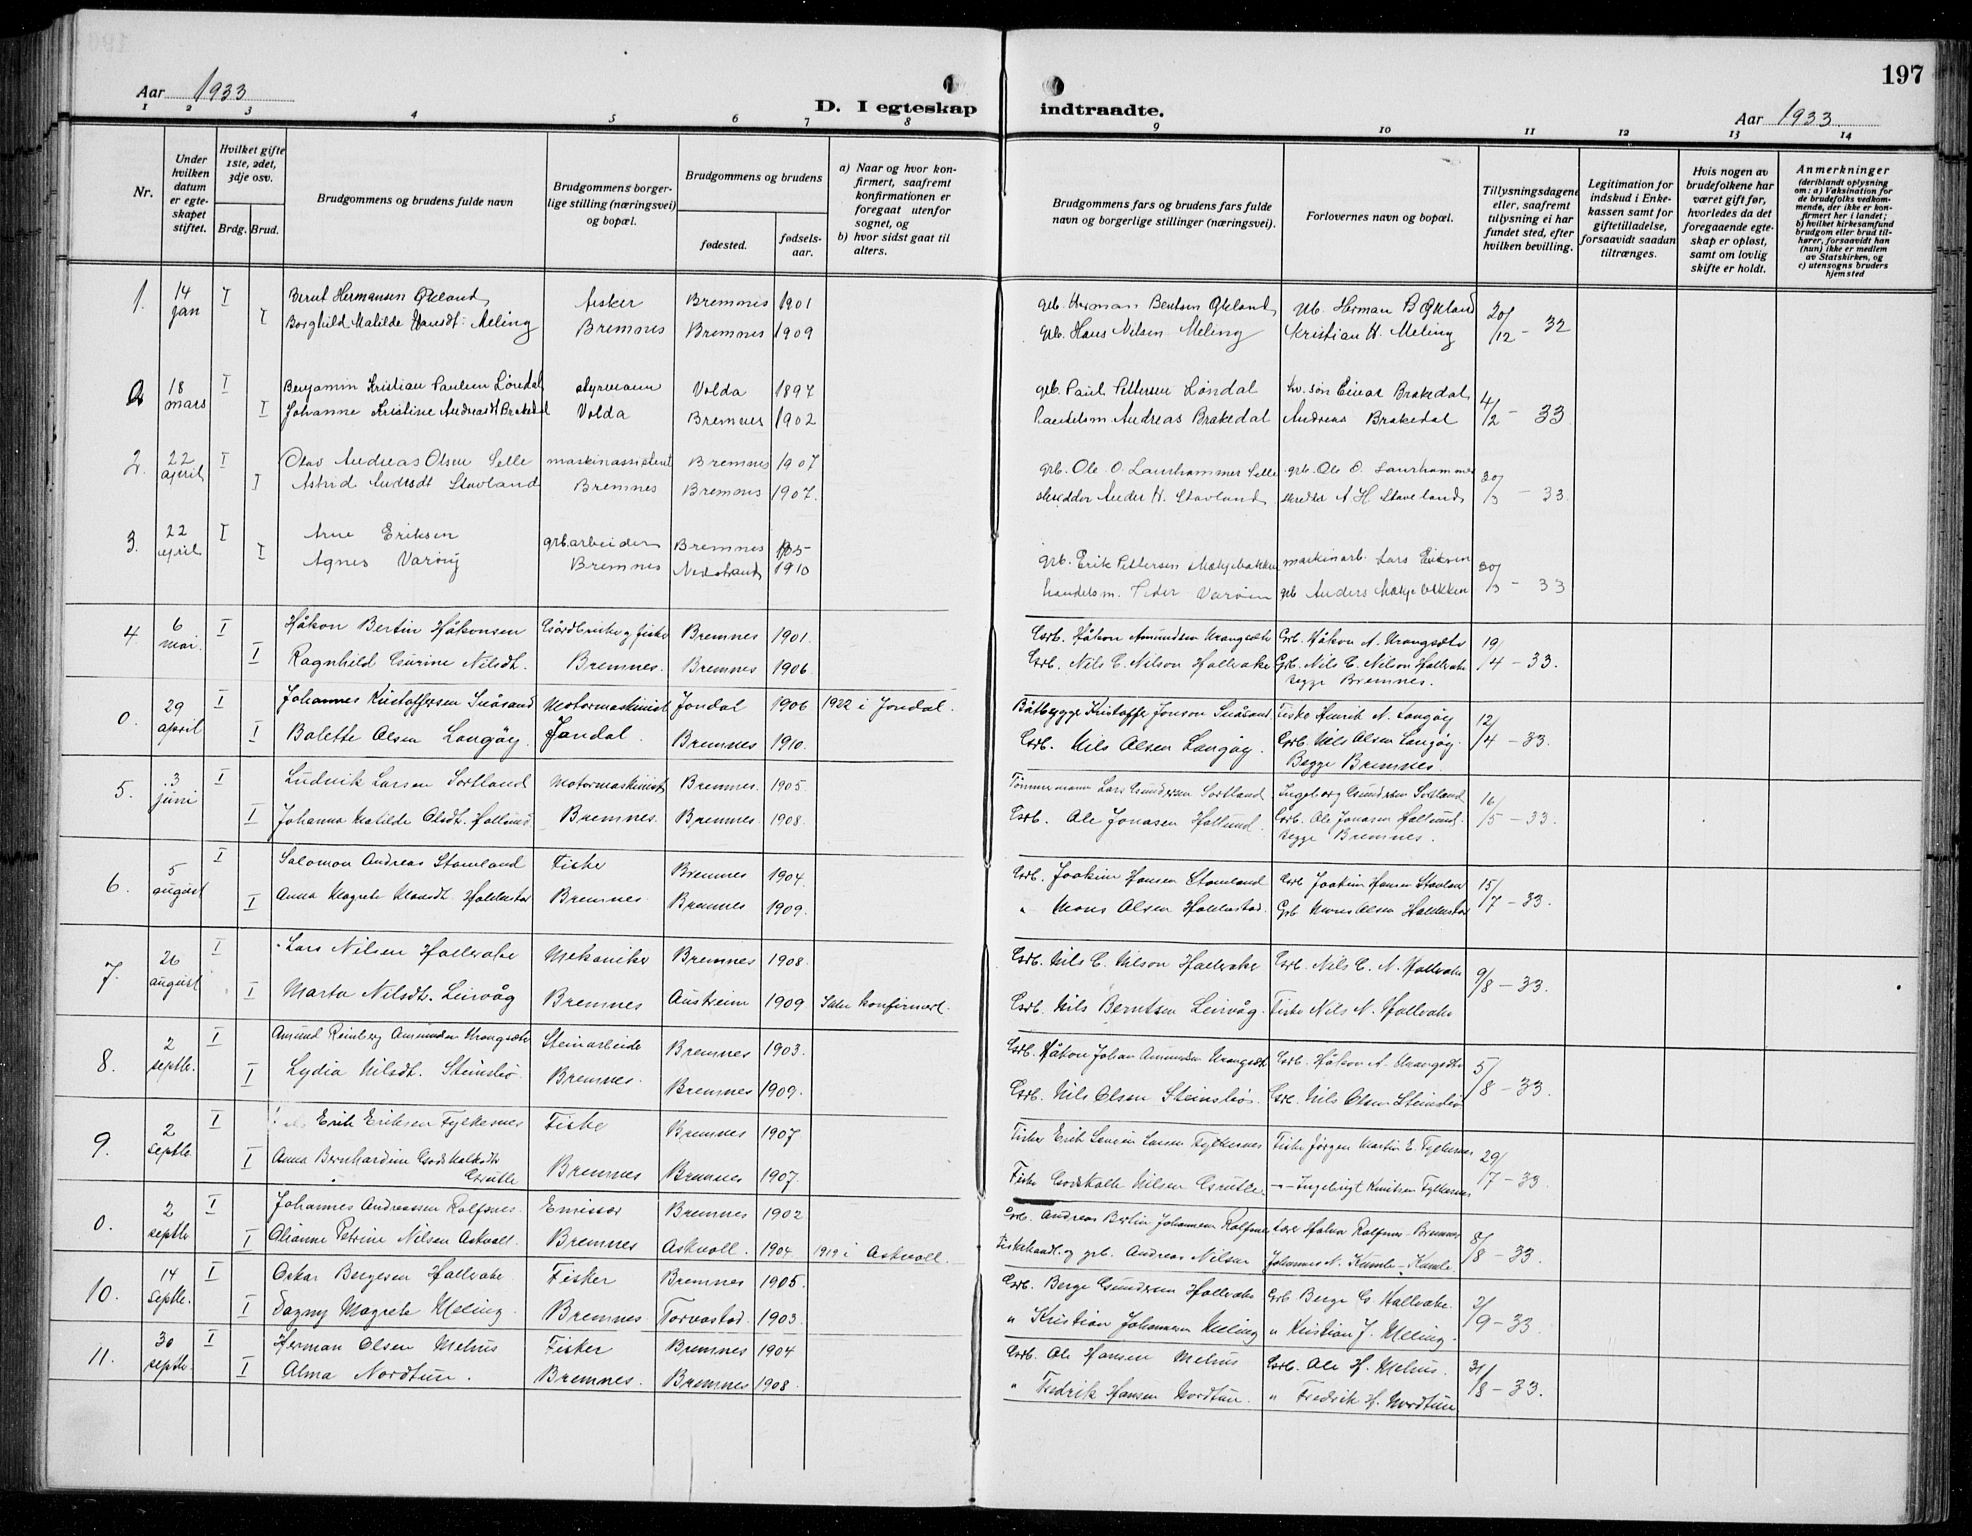 197
Aar 1933
D. I egteskap indtraadte.
Aar 1933.
1 2 3 4 5 6 7 8 9 10 11 12 13 14
Nr.
Under hvilken datum er egteskapet stiftet.
Hvilket gifte 1ste, 2det, 3dje osv.
Brdg. Brud.
Brudgommens og brudens fulde navn
Brudgommens borgerlige stilling (næringsvei) og bopæl.
Brudgommens og brudens
fødested.
fødselsaar.
a) Naar og hvor konfirmert, saafremt konfirmationen er foregaat utenfor sognet, og
b) hvor sidst gaat til alters.
Brudgommens fars og brudens fars fulde navn og borgerlige stillinger (næringsvei).
Forlovernes navn og bopæl.
Tillysningsdagene eller, saafremt tillysning ei har fundet sted, efter hvilken bevilling.
Legitimation for indskud i Enkekassen samt for giftetilladelse, forsaavidt saadan tiltrænges.
Hvis nogen av brudefolkene har været gift før, hvorledes da det foregaaende egteskap er opløst, samt om lovlig skifte er holdt.
Anmerkninger
(deriblandt oplysning om: a) Vaksination for de brudefolks vedkommende, der ikke er konfirmert her i landet; b) hvilket kirkesamfund brudgom eller brud tilhører, forsaavidt han (hun) ikke er medlem av Statskirken, og c) utensogns bruders hjemsted
1. 14 jan I Bernt Hermansen Økland fisker Bremnes 1901 grb. Herman Bentsen Økland grb. Herman B Økland 20/12 - 32
I Borghild Matilde Hansdt. Meling Bremnes Bremnes 1909 grb. Hans Nilsen Meling Kristian H. Meling
18 mars I Benjamin Kristian Paulsen Løndal styrmann Volda 1897 grb. Paul Pettersen Løndal Einar Brakedal 4/2 - 33
I Johanne Kristine Andreasdt Brakedal Volda Bremnes 1902 handelsm Andreas Brakedal Andreas Brakedal
2. 22 april I Olav Andreas Olsen Selle maskinassistent Bremnes 1907 grb. Ole O. Laurhammer Selle grb. Ole O. Laurhammer 30/3 - 33
I Astrid Andersdt Stavland Bremnes Bremnes 1907. skredder Ander H. Stavland skredder A H Stavland
3. 22 april I Arne Eriksen grb.arbeider Bremnes 1905 grb. Erik Pettersen Mækjebakken maskinarb. Lars Eriksen 30/3 - 33
I Agnes Varøy Bremnes Nedstrand 1910 handelsm. Peder Varøen grb Anders Mækjebakken
4. 6 mai. I Håkon Bertin Håkonsen Gårdbruke og fiske Bremnes 1901. Grb. Håkon Amundsen Vrangsæte Grb. Håkon A. Vrangsæte 19/4 - 33.
I Ragnhild Gurine Nilsdt. Bremnes. Bremnes 1906 Grb. Nils C. Nilson Hallvake Grb. Nils C. Nilson Hallvake
begge Bremnes.
0. 29 april I Johannes Kristoffersen Snåsand Motormaskinist Jondal 1906 1922 i Jondal. Båtbygge Kristoffer Jonson Snåsand Fiske Henrik N. Langøy 12/4 - 33.
I Bolette Olsen Langøy. Jondal. Bremnes 1910. Grb. Nils Olsen Langøy. Grb. Nils Olsen Langøy.
Begge Bremnes.
5. 3 juni I Ludvik Larsen Sortland Motormaskinist Bremnes. 1905. Tømmermann Lars Gundersen Sortland Ingeborg Gundersen Sortland 16/5 - 33.
I Johanna Matilde Olsdt. Hollund. Bremnes. Bremnes. 1908. Grb. Ole Jonasen Hollund. Grb. Ole Jonasen Hollund.
begge Bremnes.
6. 5 august I Salomon Andreas Stavland Fiske Bremnes 1904. Grb. Joakim Hansen Stavland Grb Joakim Hansen Stavland 15/7 - 33.
I Anna Magrete Monsdt. Haldorstad Bremnes. Bremnes 1909. " Mons Olsen Haldorstad. Grb. Mons Olsen Haldorstad
7. 26 august I Lars Nilsen Hallvake Mekanike Bremnes 1908. Grb. Nils C. Nilson Hallvake Grb. Nils C. N. Hallvake 9/8 - 33.
I Marta Nilsdt. Leirvåg Bremnes Austrheim 1909 Ikke konfirmert. Grb. Nils Berntsen Leirvåg. Fiske Nils N. Hallvake
8. 2 septbr. I Amund Reinberg Amundsen Vrangsæte Steinarbeide Bremnes 1903. Grb. Håkon Johan Amundsen Vrangsæte Grb. Håkon A. Vrangsæte 5/8 - 33.
I Lydia Nilsdt. Steinsbø Bremnes. Bremnes 1909. Grb. Nils Olsen Steinsbø. Grb. Nils Olsen Steinsbø
9. 2 septbr. I Erik Eriksen Fylkesnes Fiske Bremnes 1907 Fiske Erik Larsen Fylkesnes Fiske Jørgen Martin E. Fylkesnes 29/7 - 33.
I Anna Bernhardine Godskalksdtr Grutle Bremnes Bremnes 1907. Fiske Godskalk Nilsen Grutle. -"- Ingebrigt Knutsen Fylkesnes
0. 2 septbr I Johannes Andreassen Rolfsnes. Emissær Bremnes 1902 Grb. Andreas Bertin Johannesen Rolfsnes Lærer Rolfsnes - Bremnes 8/8 - 33.
I Alianne Petrine Nilsen Askvoll. Bremnes Askvoll. 1904. 1919 i Askvoll. Fiskehandl. og grb. Andreas Nilsen Johannes N. Kumle - Kumle
10. 14 septbr. I Oskar Bergesen Hallvake Fisker Bremnes 1905. Grb. Berge Gundersen Hallvake Grb Berge G. Hallvake. 2/9 - 33.
I Dagny Magrete Meling. Bremnes Torvastad. 1903. " Kristian Johannesen Meling " Kristian J. Meling.
11. 30 septbr. I Herman Olsen Mehus Fisker Bremnes 1904 Grb. Ole Hansen Mehus Grb. Ole H. Mehus. 31/8 - 33.
I Alma Nordtun. Bremnes. Bremnes 1908. " Fredrik Hansen Nordtun. " Fredrik H. Nordtun